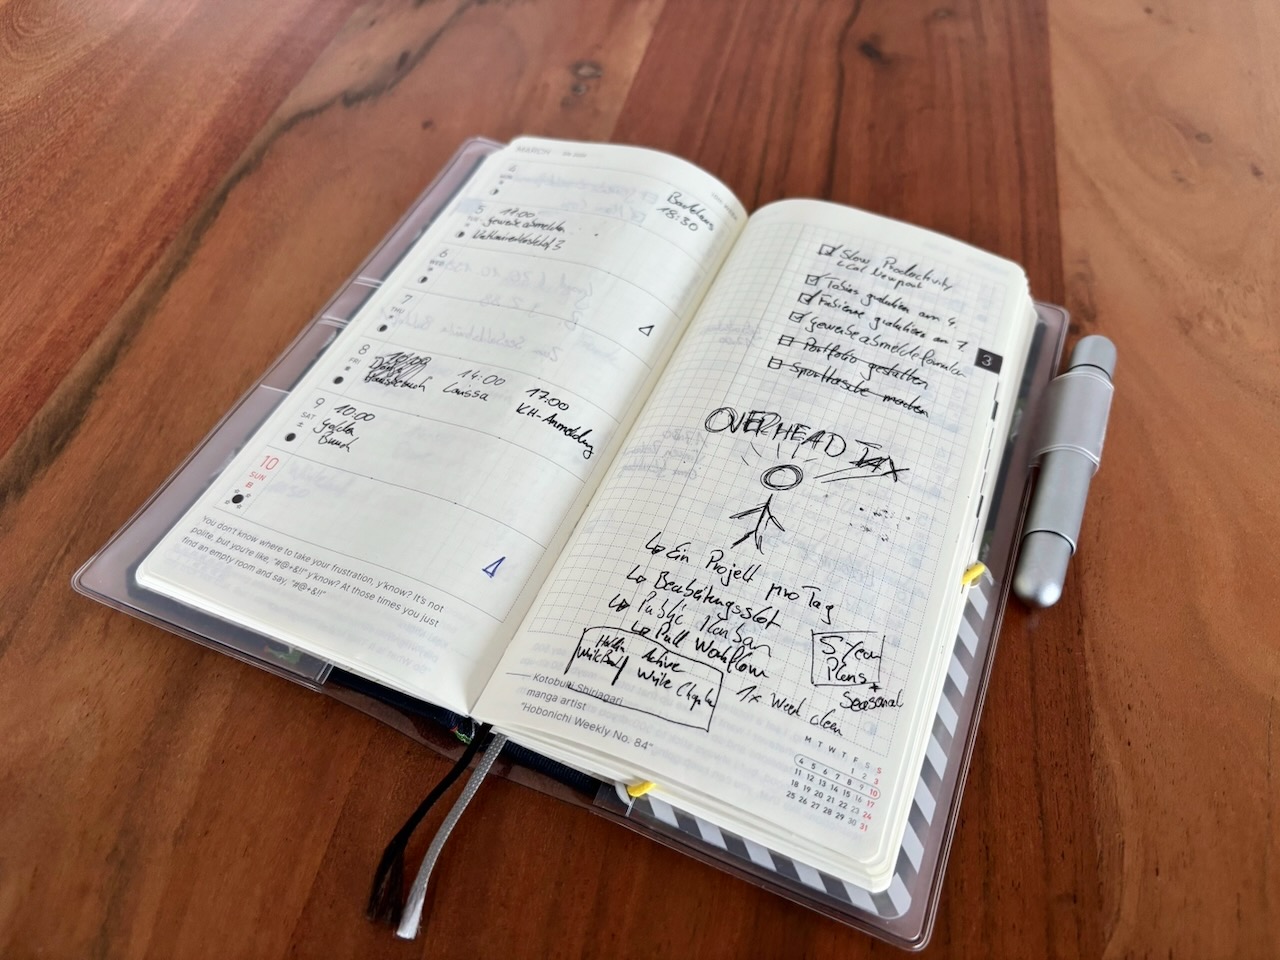 MARCH
4
Basteln
18:30
5
TUE
17:00
Gewerbe abmelden
6
WED
7
THU
4
8
FRI
14:00
Larissa
17:00
KH-Anmeldung
9
SAT
10:00
10
SUN
4
You don't know where to take your frustration, y'know? It's not
polite, but you're like, "#@+&!!" y'know? At those times you just
find an empty room and say, "#@+&!!"
Slow Productivity
Cal Newport
Tobias gratulieren am 4.
Fabienne gratulieren am 7.
Gewerbeabmeldeformular
Portfolio gestalten
Sporttasche machen
3
OVERHEAD TAX
↳ Ein Projekt pro Tag
↳ Bearbeitungsslot
↳ Public Kanban
↳ Pull Workflow
5 Year
Plans
+
Seasonal
Active
Write Chapter
1x Week clean
Kotobuki Shiriagari
manga artist
"Hobonichi Weekly No. 84"
M T W T F S S
1 2 3
4 5 6 7 8 9 10
11 12 13 14 15 16 17
18 19 20 21 22 23 24
25 26 27 28 29 30 31